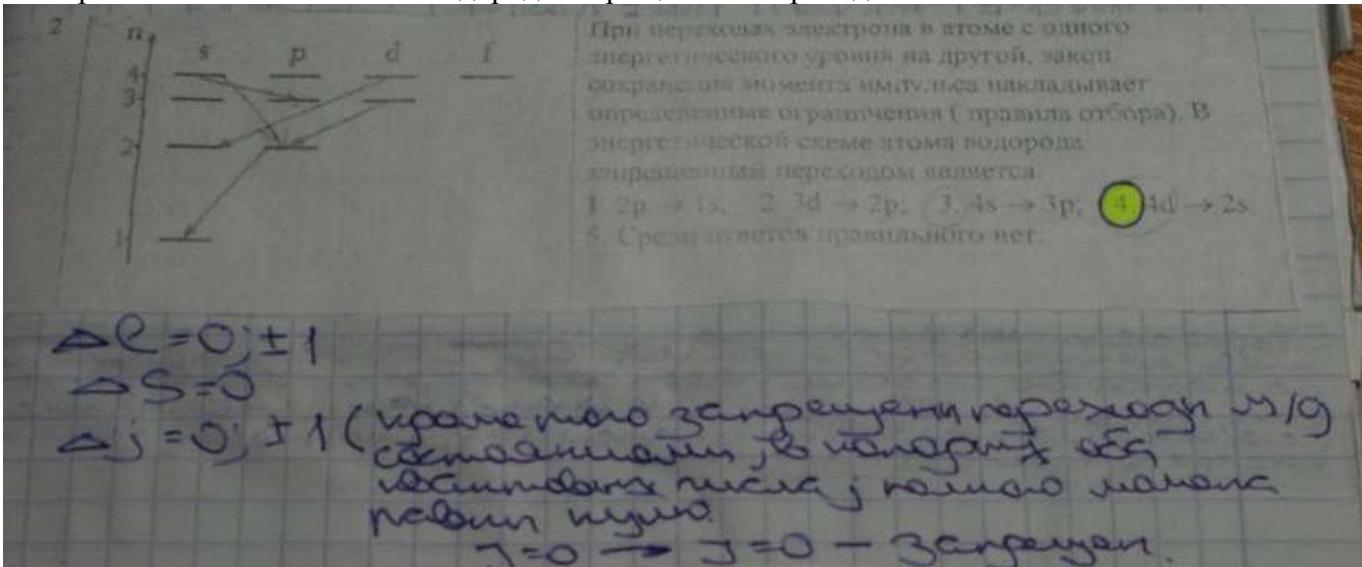 2
n
s p d f
4
3
2
1
При переходах электрона в атоме с одного
энергетического уровня на другой, закон
сохранения момента импульса накладывает
определенные ограничения ( правила отбора). В
энергетической схеме атома водорода
запрещенным переходом является
1. 2p → 1s, 2. 3d → 2p; 3. 4s → 3p; 4. 4d → 2s
5. Среди ответов правильного нет.
Δl=0; ±1
ΔS=0
Δj=0; ±1 (кроме того запрещены переходы м/д
состояниями, в которых оба
квантовых числа j полного
равны нулю.
J=0 → J=0 – запрещен.